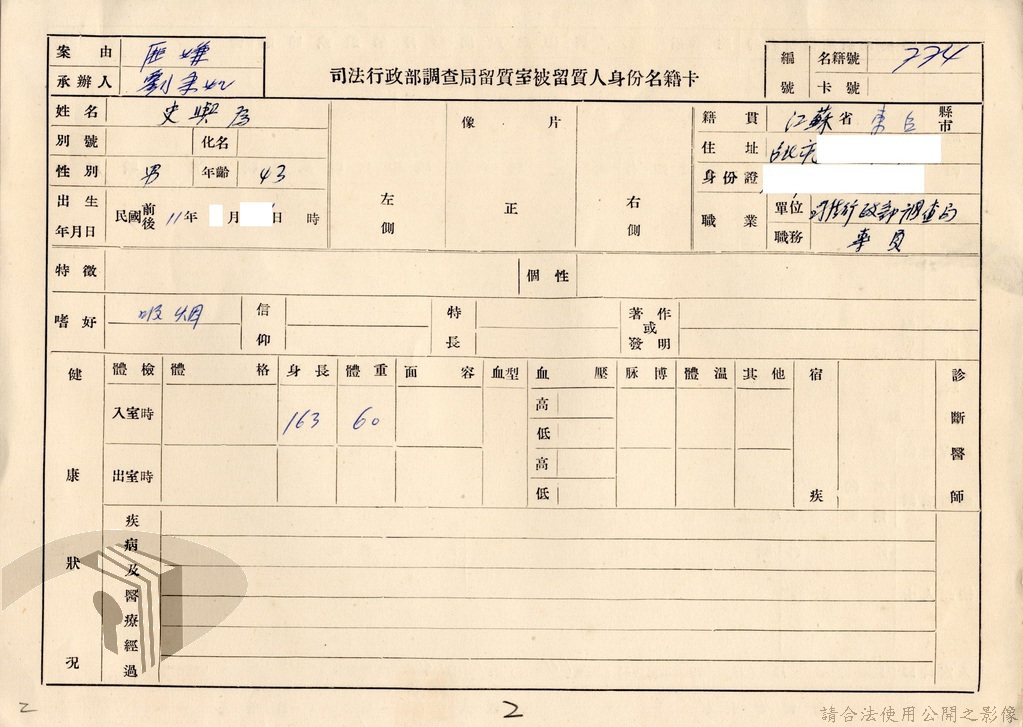 司法行政部調查局留質室被留質人身份名籍卡
案由 匪嫌
承辦人
編號 名籍號 774
卡號
姓名 史與為
別號 化名
性別 男 年齡 43
出生年月日 民國前後 11年 月 日 時
像片
左側 正 右側
籍貫 江蘇省 東台 縣市
住址 台北市
身份證
職業 單位 司法行政部調查局
職務 專員
特徵 個性
嗜好 吸烟 信仰 特長 著作或發明
健康狀況
體檢 體格 身長 體重 面容 血型 血壓 脉博 體溫 其他 宿疾 診斷醫師
入室時 163 60 高 低
出室時 高 低
疾病及醫療經過
2 2
請合法使用公開之影像